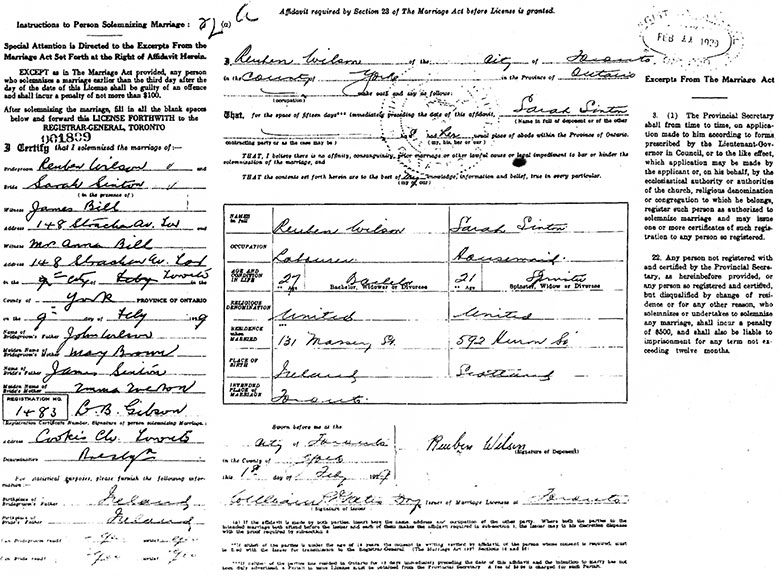 Affidavit required by Section 23 of The Marriage Act before License is granted.
Instructions to Person Solemnizing Marriage:
Special Attention is Directed to the Excerpts From the
Marriage Act Set Forth at the Right of Affidavit Herein.
EXCEPT as in The Marriage Act provided, any person
who solemnizes a marriage earlier than the third day after the
day of the date of this License shall be guilty of an offence
and shall incur a penalty of not more than $100.
After solemnizing the marriage, fill in all the blank spaces
below and forward this LICENSE FORTHWITH to the
REGISTRAR-GENERAL, TORONTO
I Certify that I solemnized the marriage of:
Bridegroom Reuben Wilson and
Bride Sarah Sinton
(in the presence of)
Witness James Bill
Address 148 Strachan Av. Tor and
Witness Mrs Anna Bill
Address 148 Strachan Av. Tor
in the City of Toronto in the
County of York PROVINCE OF ONTARIO
on the 9th day of Feby
Name of Bridegroom's Father John Wilson
Maiden Name of Bridegroom's Mother Mary Brown
Name of Bride's Father James Sinton
Maiden Name of Bride's Mother
REGISTRATION NO.
1483 Gibson
(Registration Certificate Number, Signature of person solemnizing Marriage)
Address Cooke's Ch. Toronto
Denomination Presbyn
For statistical purposes, please furnish the following information
Birthplace of Bridegroom's Father Ireland
Birthplace of Bride's Father Ireland
Can Bridegroom read? Yes write? Yes
Can Bride read? Yes write? Yes
I Reuben Wilson of the City of Toronto
in the County of York in the Province of Ontario
(occupation) make oath and say as follows:
That, for the space of fifteen days*** immediately preceding the date of this affidavit, Sarah Sinton
(Name in full of deponent or of the other
contracting party or as the case may be) had her usual place of abode within the Province of Ontario.
(my, his, her or our)
THAT, I believe there is no affinity, consanguinity, prior marriage or other lawful cause or legal impediment to bar or hinder the
solemnization of the marriage, and
THAT the contents set forth herein are to the best of my knowledge, information and belief, true in every particular.
(my or our)
NAMES in full Reuben Wilson Sarah Sinton
OCCUPATION Labourer Housemaid
AGE AND CONDITION IN LIFE 27 Bachelor 21 Spinster
Age Bachelor, Widower or Divorcee Age Spinster, Widow or Divorcee
RELIGIOUS DENOMINATION United United
RESIDENCE when MARRIED 131 Massey St. 592 Huron St
PLACE OF BIRTH Ireland Scotland
INTENDED PLACE of MARRIAGE Toronto
Sworn before me at the
City of Toronto
in the County of York
this 1st day of Feby
Reuben Wilson
(Signature of Deponent)
Issuer of Marriage Licenses at Toronto
(Signature of Issuer)
FEB 11 1929
Excerpts From The Marriage Act
3. (1) The Provincial Secretary
shall from time to time, on application
made to him according to forms
prescribed by the Lieutenant-Governor
in Council, or to the like effect,
which application may be made by
the applicant or, on his behalf, by the
ecclesiastical authority or authorities
of the church, religious denomination
or congregation to which he belongs,
register such person as authorized to
solemnize marriage and may issue
one or more certificates of such registration
to any person so registered.
22. Any person not registered with
and certified by the Provincial Secretary,
as hereinbefore provided, or
any person so registered and certified,
but disqualified by change of residence
or for any other reason, who
solemnizes or undertakes to solemnize
any marriage, shall incur a penalty
of $500, and shall also be liable to
imprisonment for any term not exceeding
twelve months.